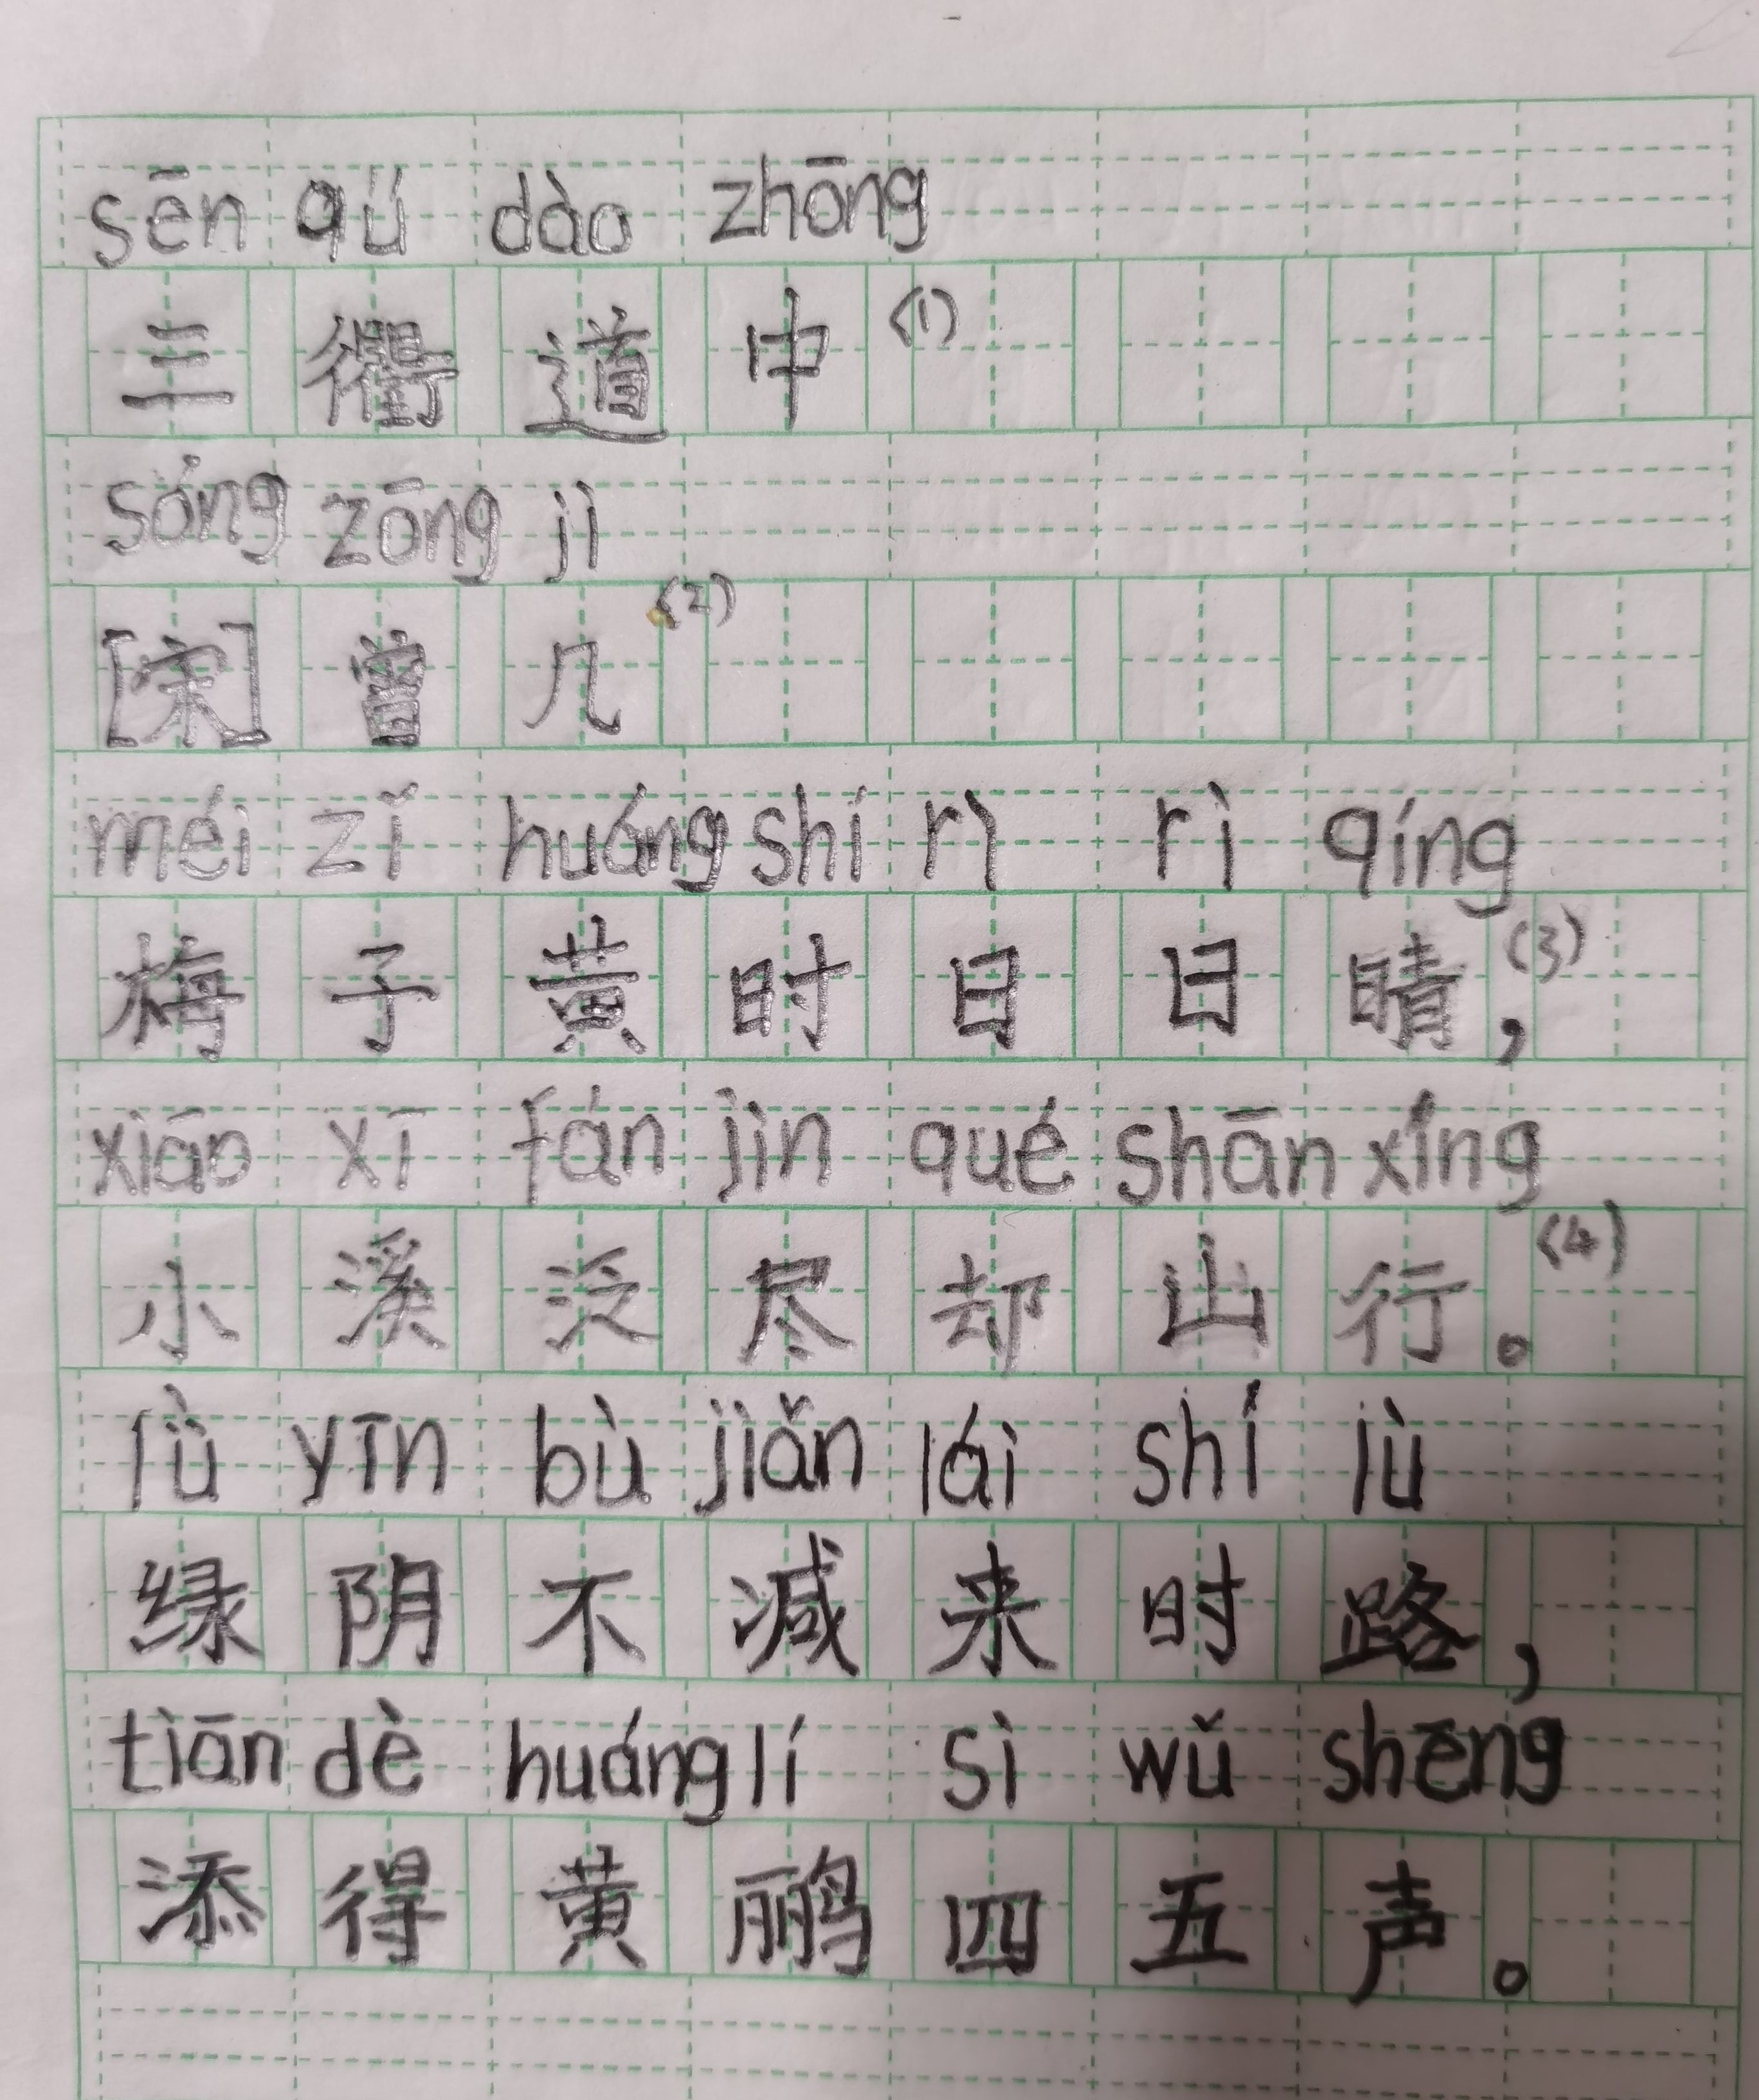 sēn qǘ dào zhōng
三衢道中(1)
sóng zōng jì
[宋]曾几(2)
méi zǐ huáng shí rì rì qíng
梅子黄时日日晴,(3)
xiāo xī fán jìn qué shān xíng
小溪泛尽却山行。(4)
lǜ yīn bù jiǎn lái shí lù
绿阴不减来时路,
tiān dè huáng lí sì wǔ shēng
添得黄鹂四五声。